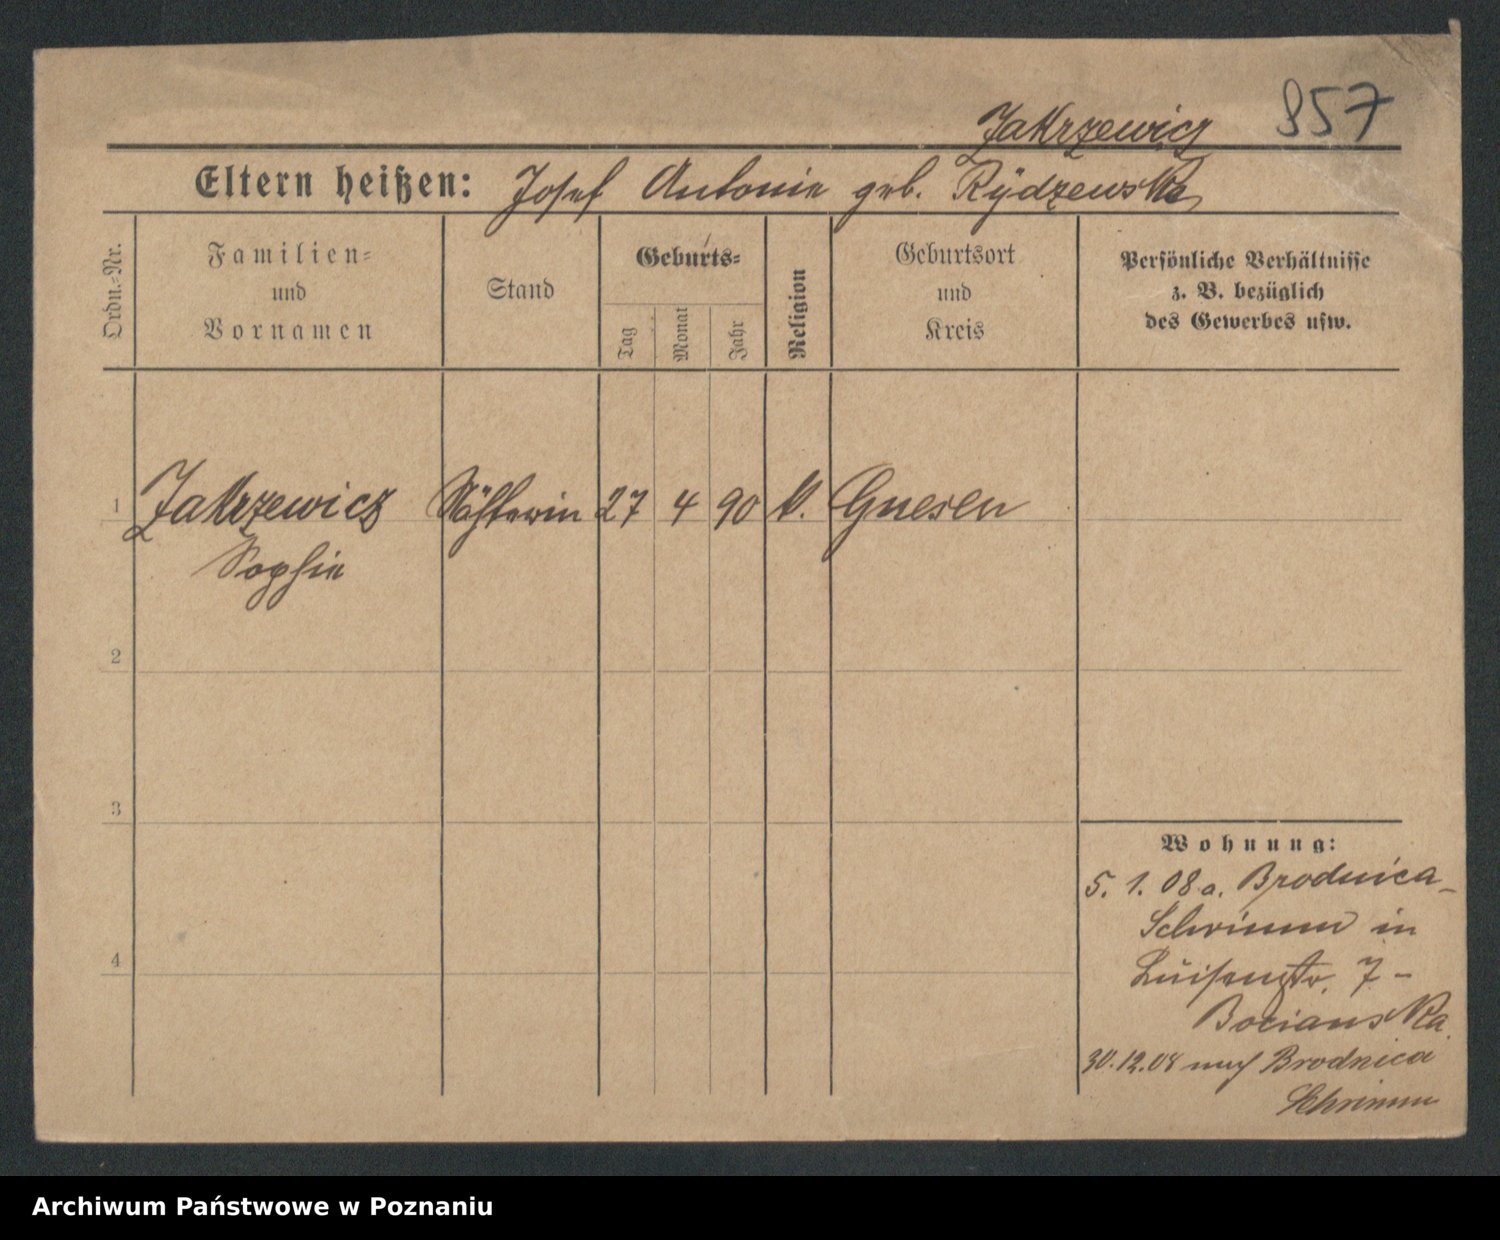 Zakrzewicz 857
Eltern heißen: Josef Antonie geb. Rydzewska
Ordn.-Nr.
Familien-
und
Vornamen
Stand
Geburts-
Tag
Monat
Jahr
Religion
Geburtsort
und
Kreis
Persönliche Verhältnisse
z. B. bezüglich
des Gewerbes usw.
1 Zakrzewicz Nähterin 27 4 90 k. Gnesen
Sophie
2
3
4
Wohnung:
5. 1. 08 a. Brodnica-
Schrimm in
Luisenstr. 7 -
Bocianska
30.12.08 nach Brodnica
Schrimm
Archiwum Państwowe w Poznaniu